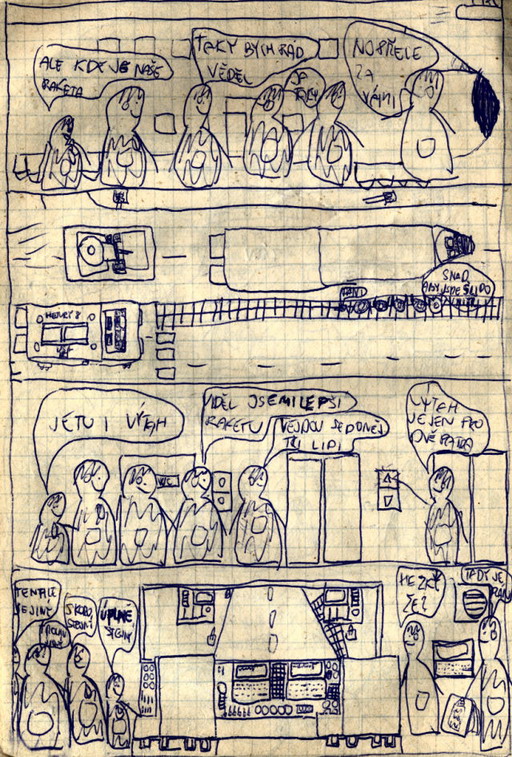 ALE KDE JE NAŠE
RAKETA
TAKY BYCH RÁD
VĚDĚL
JÁ
TAKY
NO PŘELE
ZA
VÁMI
SNAD
HENRY 8
JE TU I VÝTAH
VIDĚL JSEM I LEPŠÍ
RAKETU
VEJDOU SE DO NEJ
TŘI LIDI
VÝTAH
JE JEN PRO
DVĚ PATRA
TENHLE
JE JINÝ
SKORO
STEJNÝ
ÚPLNĚ
STEJNÝ
HEZKÉ
ŽE?
TADY JE